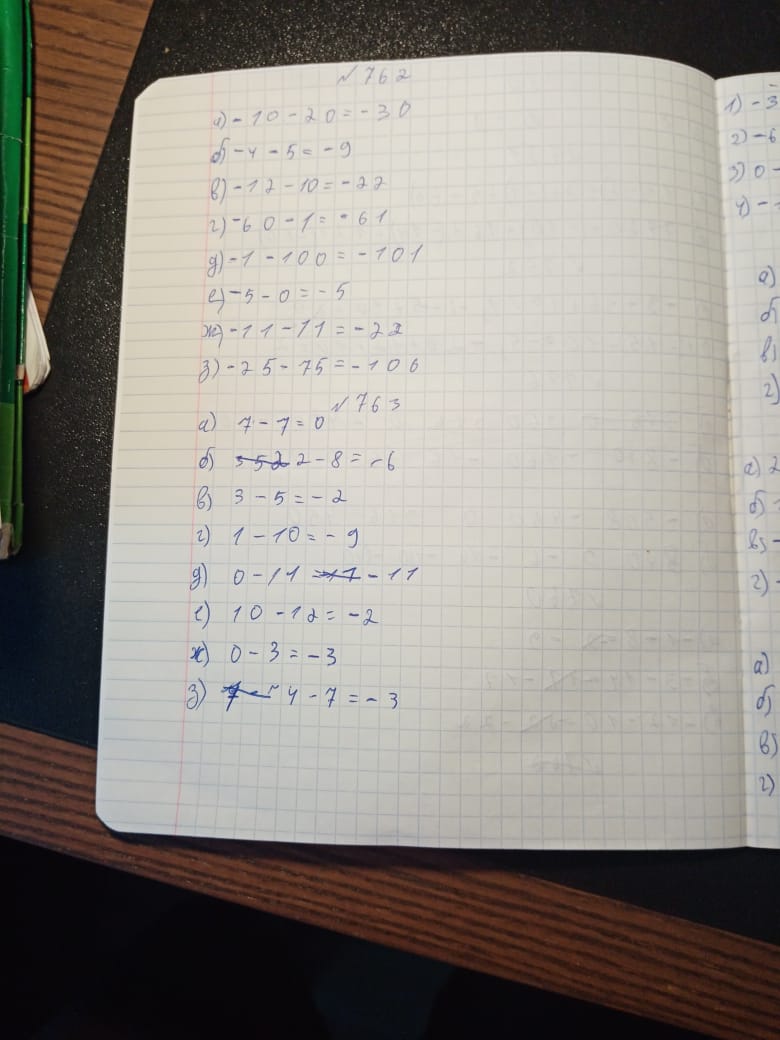 №762
а) -10-20=-30
б) -4-5=-9
в) -12-10=-22
г) -60-1=-61
д) -1-100=-101
е) -5-0=-5
ж) -11-11=-22
з) -25-75=-106
№763
а) 7-7=0
б) 2-8=-6
в) 3-5=-2
г) 1-10=-9
д) 0-11 = -11
е) 10-12=-2
ж) 0-3=-3
з) 4-7=-3
1) -3
2) -6
3) 0-
4) -
а)
б)
в)
г)
а) 2
б)
в) -
г) -
а)
б)
в)
г)